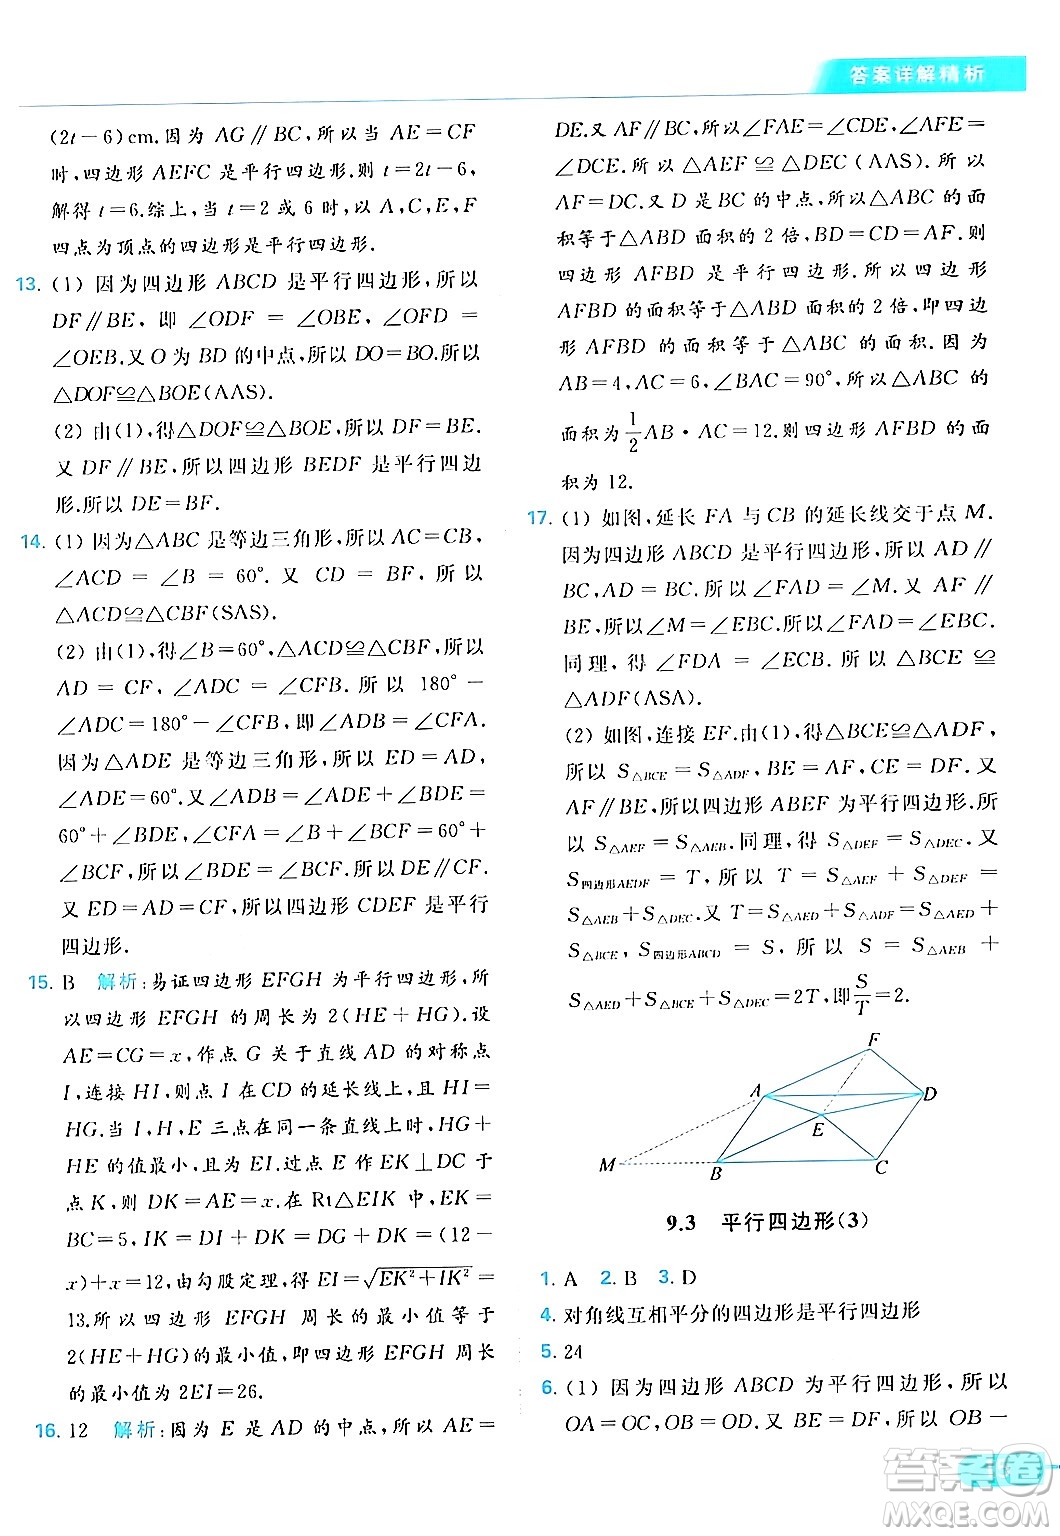 答案详解精析
(2t－6)cm.因为 AG∥BC,所以当 AE＝CF
时,四边形 AEFC 是平行四边形.则 t＝2t－6,
解得 t＝6.综上,当 t＝2 或 6 时,以 A,C,E,F
四点为顶点的四边形是平行四边形.
13. (1) 因为四边形 ABCD 是平行四边形,所以
DF∥BE, 即 ∠ODF ＝ ∠OBE, ∠OFD ＝
∠OEB.又 O 为 BD 的中点,所以 DO＝BO.所以
△DOF≌△BOE(AAS).
(2) 由(1),得△DOF≌△BOE,所以 DF＝BE.
又 DF∥BE,所以四边形 BEDF 是平行四边
形.所以 DE＝BF.
14. (1) 因为△ABC 是等边三角形,所以 AC＝CB,
∠ACD ＝ ∠B ＝ 60°. 又 CD ＝ BF, 所以
△ACD≌△CBF(SAS).
(2) 由(1),得∠B＝60°,△ACD≌△CBF,所以
AD ＝ CF, ∠ADC ＝ ∠CFB. 所以 180° －
∠ADC＝180°－∠CFB,即∠ADB＝∠CFA.
因为△ADE 是等边三角形,所以 ED＝AD,
∠ADE＝60°.因为∠ADB＝∠ADE＋∠BDE＝
60°＋∠BDE,∠CFA＝∠B＋∠BCF＝60°＋
∠BCF,所以∠BDE＝∠BCF.所以DE∥CF.
又 ED＝AD＝CF,所以四边形 CDEF 是平行
四边形.
15. B 解析:易证四边形 EFGH 为平行四边形,所
以四边形 EFGH 的周长为 2(HE＋HG).设
AE＝CG＝x,作点 G 关于直线 AD 的对称点
I,连接 HI,则点 I 在CD 的延长线上,且 HI＝
HG.当 I,H,E 三点在同一条直线上时,HG＋
HE 的值最小,且为 EI.过点 E 作 EK⊥DC 于
点 K,则 DK＝AE＝x.在 Rt△EIK 中,EK＝
BC＝5,IK＝DI＋DK＝DG＋DK＝(12－
x)＋x＝12,由勾股定理,得 EI＝√(EK²＋IK²)＝
13.所以四边形 EFGH 周长的最小值等于
2(HE＋HG)的最小值,即四边形 EFGH 周长
的最小值为 2EI＝26.
16. 12 解析:因为 E 是 AD 的中点,所以 AE＝
DE.又 AF∥BC,所以∠FAE＝∠CDE,∠AFE＝
∠DCE.所以△AEF≌△DEC(AAS).所以
AF＝DC.又 D 是 BC 的中点,所以△ABC 的面
积等于△ABD 面积的 2 倍,BD＝CD＝AF.则
四边形 AFBD 是平行四边形.所以四边形
AFBD 的面积等于△ABD 面积的 2 倍,即四边
形 AFBD 的面积等于△ABC 的面积.因为
AB＝4,AC＝6,∠BAC＝90°,所以△ABC 的
面积为 1/2 AB·AC＝12.则四边形 AFBD 的面
积为 12.
17. (1) 如图,延长 FA 与 CB 的延长线交于点 M.
因为四边形 ABCD 是平行四边形,所以 AD∥
BC,AD＝BC.所以∠FAD＝∠M.又 AF∥
BE,所以∠M＝∠EBC.所以∠FAD＝∠EBC.
同理,得∠FDA ＝∠ECB.所以 △BCE ≌
△ADF(ASA).
(2) 如图,连接 EF.由(1),得△BCE≌△ADF,
所以 S△BCE＝S△ADF,BE＝AF,CE＝DF.又
AF∥BE,所以四边形 ABEF 为平行四边形.所
以 S△AEF＝S△AEB.同理,得 S△DEF＝S△DEC.又
S四边形AEDF ＝ T, 所以 T ＝ S△AEF ＋ S△DEF ＝
S△AEB＋S△DEC.又 T＝S△AED＋S△ADF＝S△AED＋
S△BCE, S四边形ABCD ＝ S, 所以 S ＝ S△AEB ＋
S△AED＋S△BCE＋S△DEC＝2T,即S/T＝2.
F
A
D
E
M
B
C
9.3 平行四边形(3)
1. A 2. B 3. D
4. 对角线互相平分的四边形是平行四边形
5. 24
6. (1) 因为四边形 ABCD 为平行四边形,所以
OA＝OC,OB＝OD.又BE＝DF,所以 OB－
答案圈
MXQE.COM